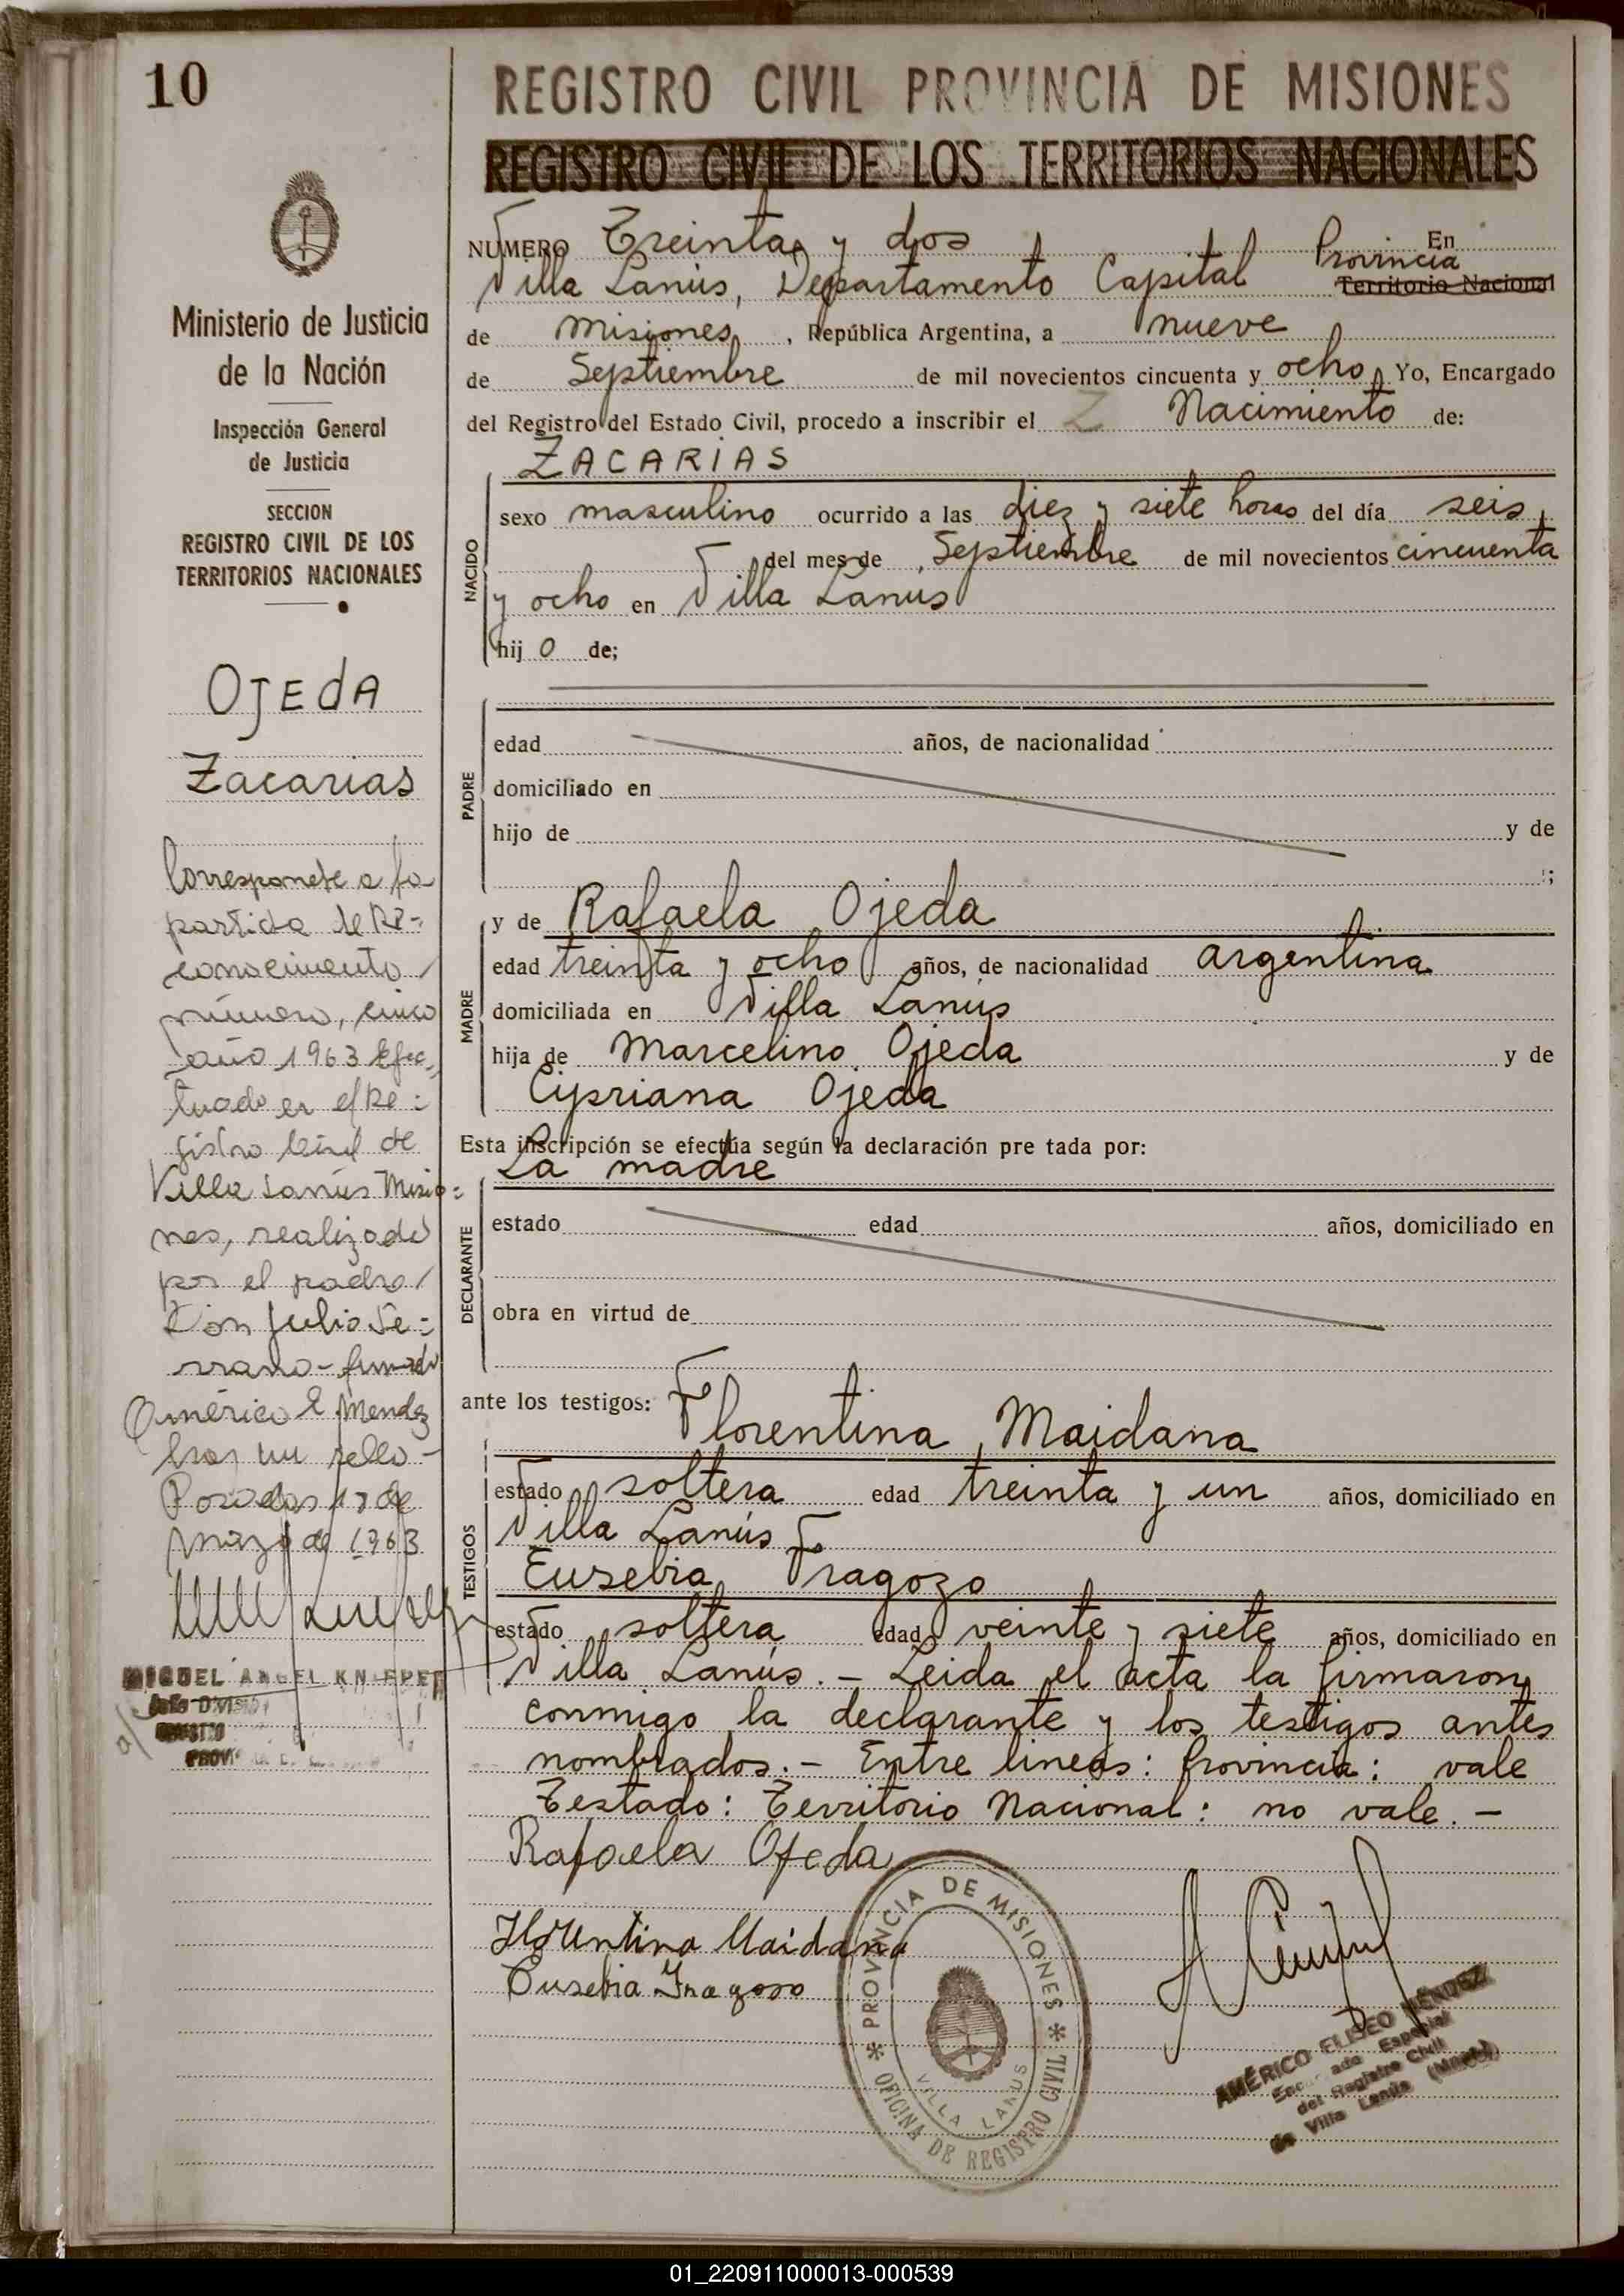 10
REGISTRO CIVIL PROVINCIA DE MISIONES
REGISTRO CIVIL DE LOS TERRITORIOS NACIONALES
Ministerio de Justicia
de la Nación
Inspección General
de Justicia
SECCION
REGISTRO CIVIL DE LOS
TERRITORIOS NACIONALES
OJEDA
Zacarias
Corresponde a la
partida de Re=
conocimiento
número, cinco
año 1963 Efec=
tuado en el Re=
gistro Civil de
Villa Lanús Misio=
nes, realizado
por el padre
Don Julio Se=
rrano - firmado
Américo E. Mendez
hay un sello -
Posadas 18 de
marzo de 1963
MIGUEL ANGEL KNEPPER
NUMERO Treinta y dos En
Villa Lanús, Departamento Capital Provincia Territorio Nacional
de Misiones, República Argentina, a nueve
de Septiembre de mil novecientos cincuenta y ocho, Yo, Encargado
del Registro del Estado Civil, procedo a inscribir el Z Nacimiento de:
ZACARIAS
NACIDO
sexo masculino ocurrido a las diez y siete horas del día seis
del mes de Septiembre de mil novecientos cincuenta
y ocho en Villa Lanus
hij o de;
PADRE
edad años, de nacionalidad
domiciliado en
hijo de y de
;
MADRE
y de Rafaela Ojeda
edad treinta y ocho años, de nacionalidad argentina
domiciliada en Villa Lanús
hija de Marcelino Ojeda y de
Cipriana Ojeda
Esta inscripción se efectúa según la declaración pre tada por:
La madre
DECLARANTE
estado edad años, domiciliado en
obra en virtud de
ante los testigos: Florentina Maidana
TESTIGOS
estado soltera edad treinta y un años, domiciliado en
Villa Lanús
Eusebia Fragozo
estado soltera edad veinte y siete años, domiciliado en
Villa Lanús. - Leida el acta la firmaron
conmigo la declarante y los testigos antes
nombrados. - Entre lineas: Provincia: vale
Testado: Territorio Nacional: no vale. -
Rafaela Ojeda
Florentina Maidana
Eusebia Fragoso
PROVINCIA DE MISIONES
OFICINA DE REGISTRO CIVIL
VILLA LANUS
AMÉRICO ELISEO MÉNDEZ
Especial
del Registro Civil
de Villa Lanús
01_220911000013-000539